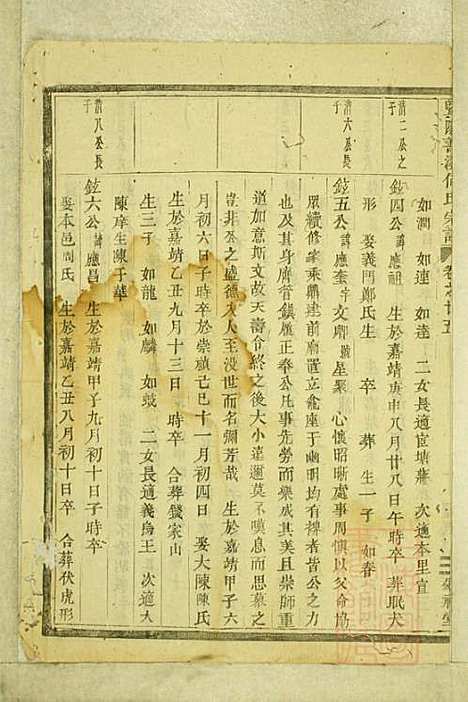 暨陽善溪何氏宗譜 卷之廿五
如潤 如連 如逵 二女長適宦塘蕭 次適本里宣
清二公之子
鉉四公諱應祖 生於嘉靖庚申八月廿八日午時卒 葬眠犬
形 娶義門鄭氏生 卒 葬 生一子 如春
清六公長子
鉉五公諱應奎字文卿號星聚 心懷昭晰處事周慎以父命協
眾續修家乘鼎建前廟置立龕座于以幽明均有裨者皆公之力
也及其身膺管鎮厰正奉公凡事先勞而樂成其美且崇師重
道加意斯文故天壽令終之後大小遠邇莫不嘆息而思慕之
豈非公之盛德大人人至沒世而名彌芳哉 生於嘉靖甲子六
月初六日子時卒於崇禎己巳十一月初四日 娶大陳陳氏
生於嘉靖乙丑九月十三日 時卒 合葬 家山
生三子 如龍 如麟 如 二女長適義烏王 次適大
陳庠生陳于華
清八公長子
鉉六公諱應昌 生於嘉靖甲子九月初十日子時卒
娶本邑周氏 生於嘉靖乙丑八月初十日卒 合葬伏虎形